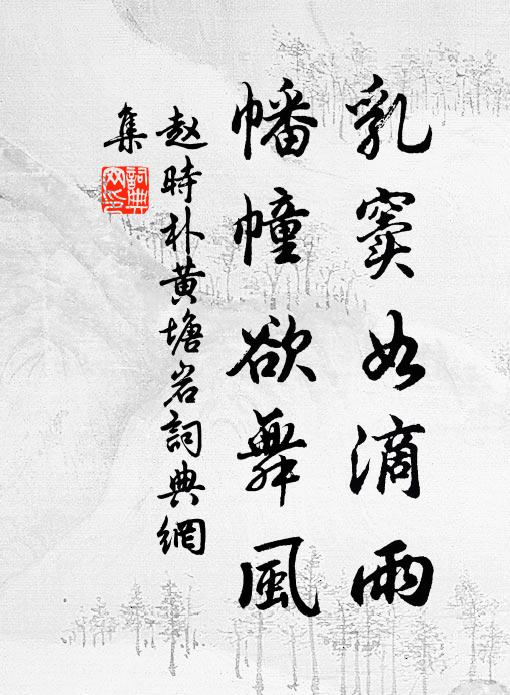 乳竇如滴雨
幡幢欲舞風
赵時朴黄塘岩詞典網
集
詞典網印